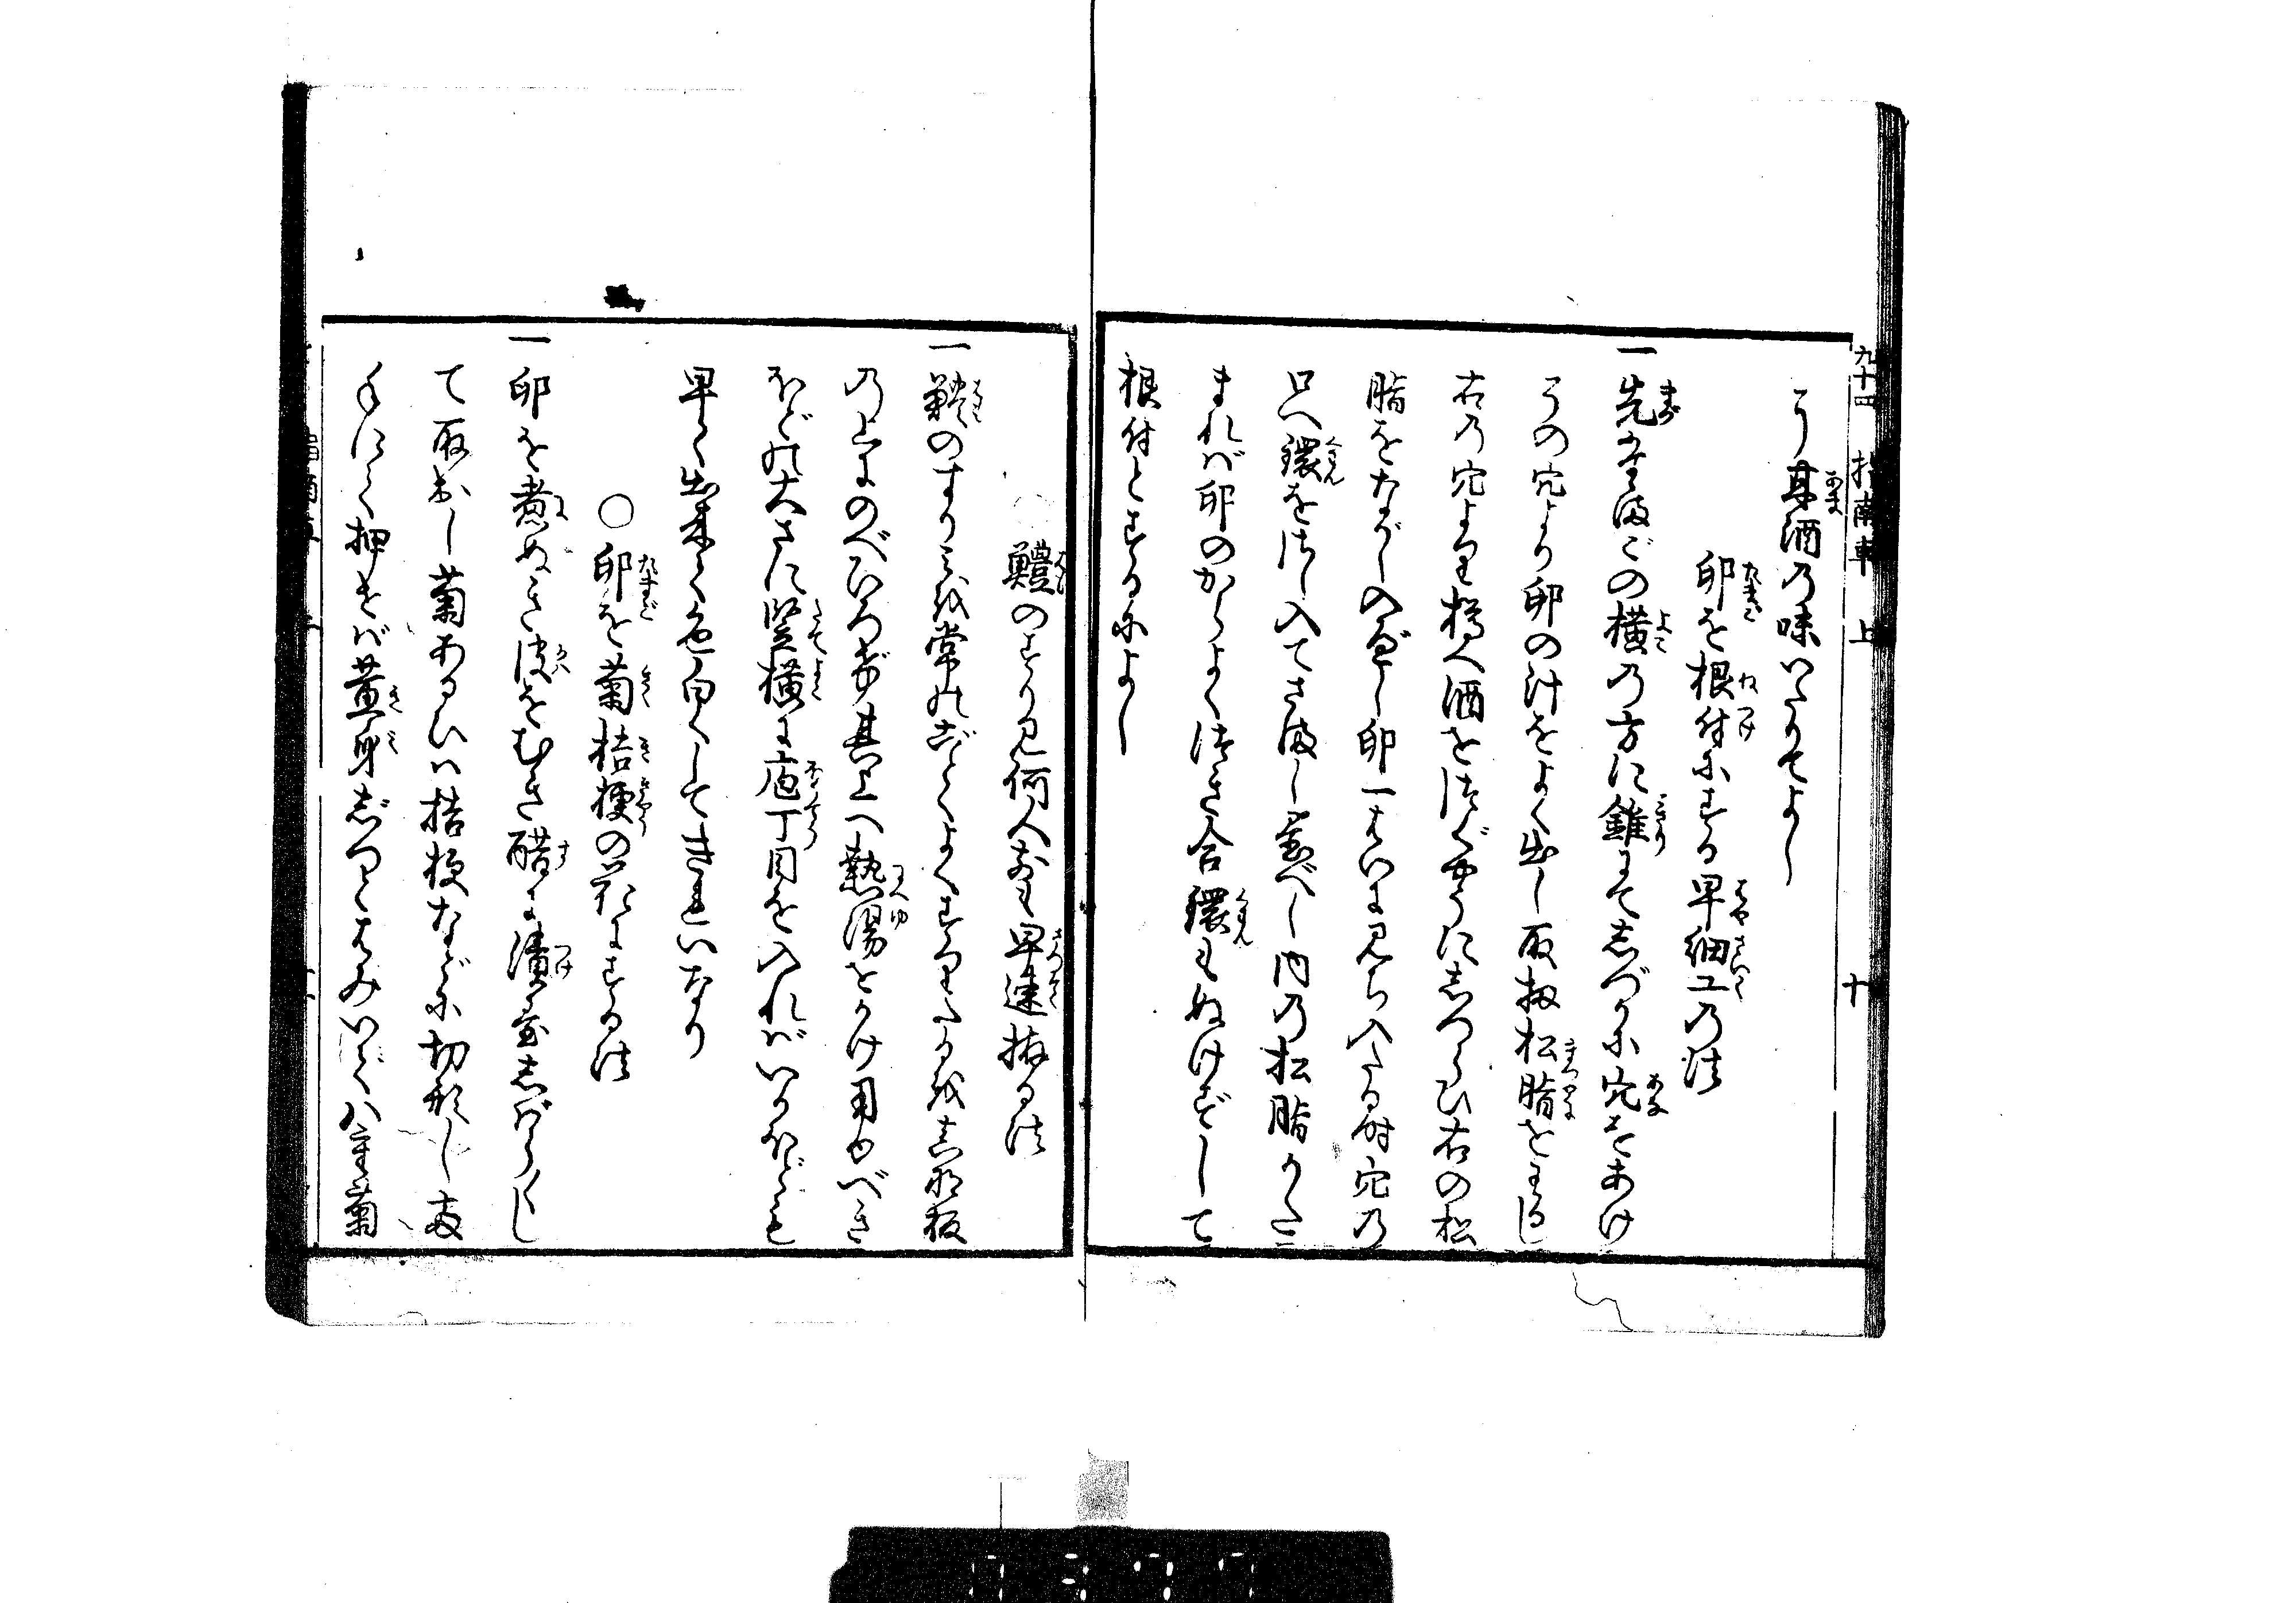 九十四 指南車 上 十
り甘酒の味いたつてよし
卵を根付にする早細工の法
一先たまごの横の方に錐にて志づかに穴をあけ
うの穴より卵の汁をよく出し取扨松脂をわかし
右の穴より樽へ酒をつぐやうに志つらひ右の松
脂をながし入べし卵一はいにみち入たる時穴の
口へ環をさし入てさまし置べし内の松脂かたま
まれば卵のからよくつき合環もぬけずして
根付とするによし
鱧のすり身何人前も早速拵る法
一鱧のすりみを常のごとくよくすりたるを真那板
の上にのべひろげ其上へ熱湯をかけ用ゆべき
ほどの大さに竪横に庖丁目を入ればいかほども
早く出来て色白くしてきれいなり
○卵を菊桔梗の花にする法
一卵を煮ぬき皮をむき醋に漬置志ばらくし
て取出し菊あるひは桔梗などに切形し扨
手にて押せば黄身志つくはみいでゝ八重菊